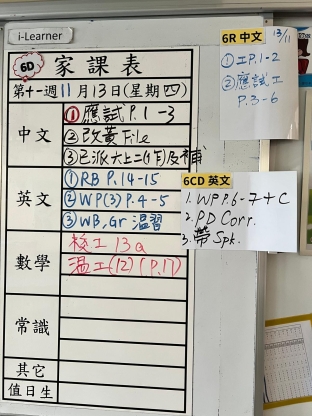 i-Learner
6D 家課表
第十一週11月13日(星期四)
中文
①應試P.1-3
②改黃File
③已派大上二(作)及補
英文
①RB P.14-15
②WP(3) P.4-5
③WB, Gr 溫習
數學
校工13a
溫工(12) (P.17)
常識
其它
值日生
6R 中文 13/11
①工P.1-2
②應試工
P.3-6
6CD 英文
1. WP P.6-7+C
2. PD Corr.
3. 帶 Spk.